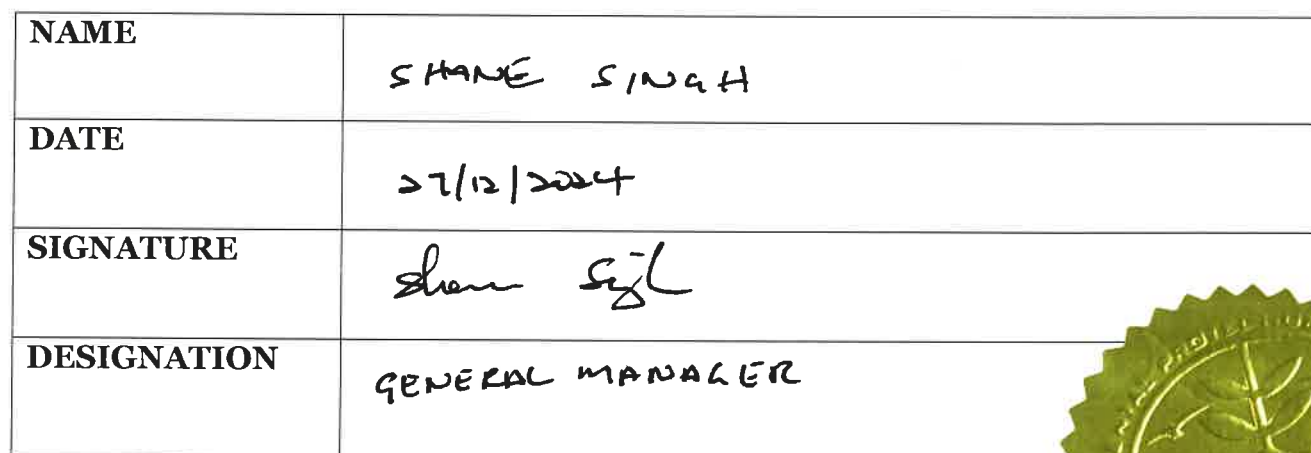 NAME
SHANE SINGH
DATE
27/12/2024
SIGNATURE
DESIGNATION
GENERAL MANAGER